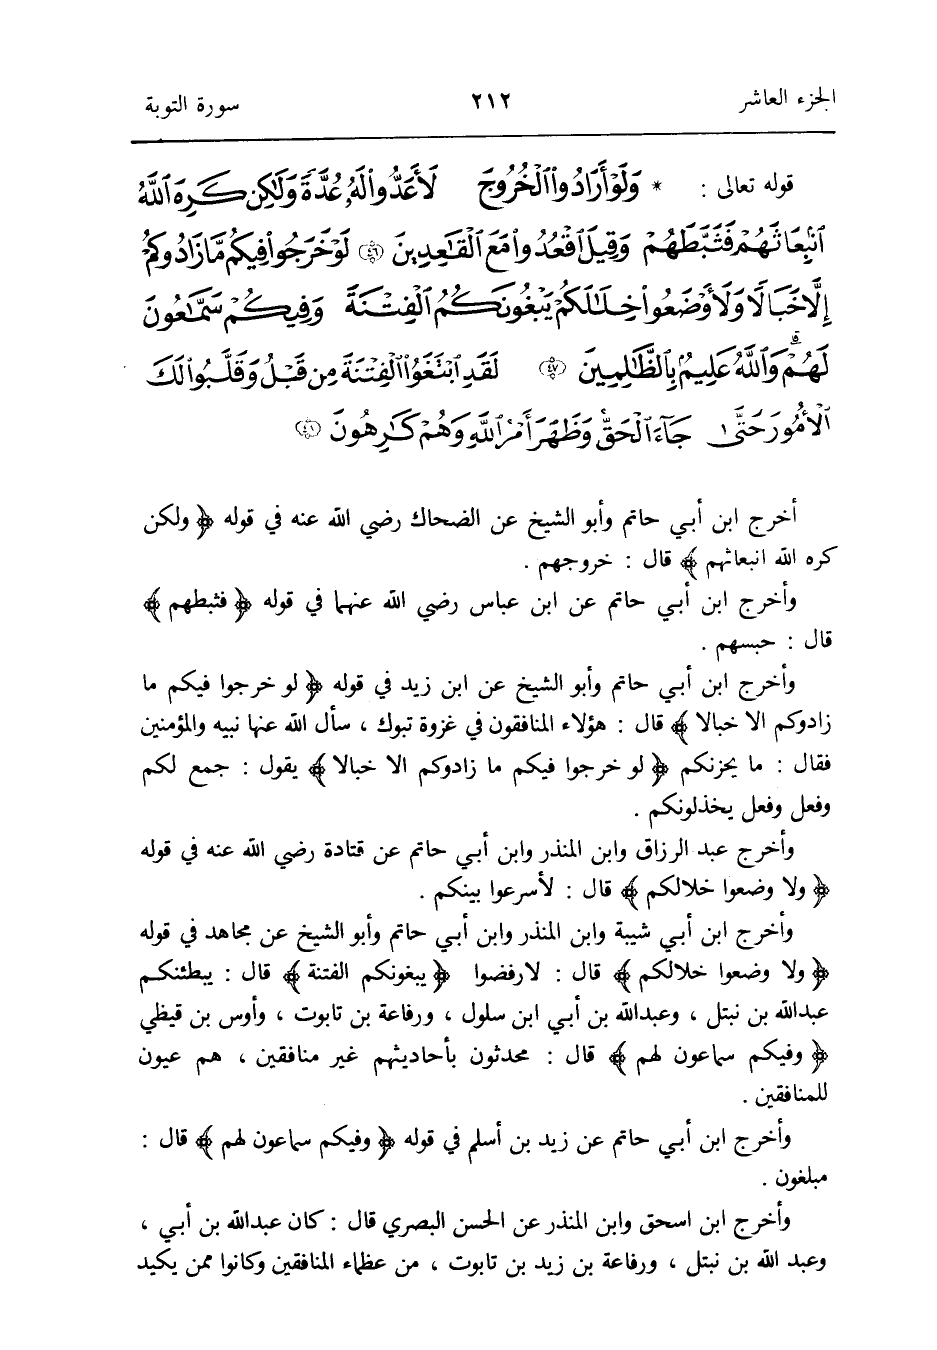 الجزء العاشر ٢١٢ سورة التوبة
قوله تعالى : * وَلَوْ أَرَادُوا۟ ٱلْخُرُوجَ لَأَعَدُّوا۟ لَهُۥ عُدَّةً وَلَٰكِن كَرِهَ ٱللَّهُ
ٱنۢبِعَاثَهُمْ فَثَبَّطَهُمْ وَقِيلَ ٱقْعُدُوا۟ مَعَ ٱلْقَٰعِدِينَ ﴿٤٦﴾ لَوْ خَرَجُوا۟ فِيكُم مَّا زَادُوكُمْ
إِلَّا خَبَالًا وَلَأَوْضَعُوا۟ خِلَٰلَكُمْ يَبْغُونَكُمُ ٱلْفِتْنَةَ وَفِيكُمْ سَمَّٰعُونَ
لَهُمْ ۗ وَٱللَّهُ عَلِيمٌۢ بِٱلظَّٰلِمِينَ ﴿٤٧﴾ لَقَدِ ٱبْتَغَوُا۟ ٱلْفِتْنَةَ مِن قَبْلُ وَقَلَّبُوا۟ لَكَ
ٱلْأُمُورَ حَتَّىٰ جَآءَ ٱلْحَقُّ وَظَهَرَ أَمْرُ ٱللَّهِ وَهُمْ كَٰرِهُونَ ﴿٤٨﴾
أخرج ابن أبي حاتم وأبو الشيخ عن الضحاك رضي الله عنه في قوله ﴿ ولكن
كره الله انبعاثهم ﴾ قال : خروجهم .
وأخرج ابن أبي حاتم عن ابن عباس رضي الله عنهما في قوله ﴿ فثبطهم ﴾
قال : حبسهم .
وأخرج ابن أبي حاتم وأبو الشيخ عن ابن زيد في قوله ﴿ لو خرجوا فيكم ما
زادوكم الا خبالا ﴾ قال : هؤلاء المنافقون في غزوة تبوك ، سأل الله عنها نبيه والمؤمنين
فقال : ما يحزنكم ﴿ لو خرجوا فيكم ما زادوكم الا خبالا ﴾ يقول : جمع لكم
وفعل وفعل يخذلونكم .
وأخرج عبد الرزاق وابن المنذر وابن أبي حاتم عن قتادة رضي الله عنه في قوله
﴿ ولا وضعوا خلالكم ﴾ قال : لأسرعوا بينكم .
وأخرج ابن أبي شيبة وابن المنذر وابن أبي حاتم وأبو الشيخ عن مجاهد في قوله
﴿ ولا وضعوا خلالكم ﴾ قال : لارفضوا ﴿ يبغونكم الفتنة ﴾ قال : يبطئنكم
عبدالله بن نبتل ، وعبدالله بن أبي ابن سلول ، ورفاعة بن تابوت ، وأوس بن قيظي
﴿ وفيكم سماعون لهم ﴾ قال : محدثون بأحاديثهم غير منافقين ، هم عيون
للمنافقين .
وأخرج ابن أبي حاتم عن زيد بن أسلم في قوله ﴿ وفيكم سماعون لهم ﴾ قال :
مبلغون .
وأخرج ابن اسحق وابن المنذر عن الحسن البصري قال : كان عبدالله بن أبي ،
وعبد الله بن نبتل ، ورفاعة بن زيد بن تابوت ، من عظماء المنافقين وكانوا ممن يكيد